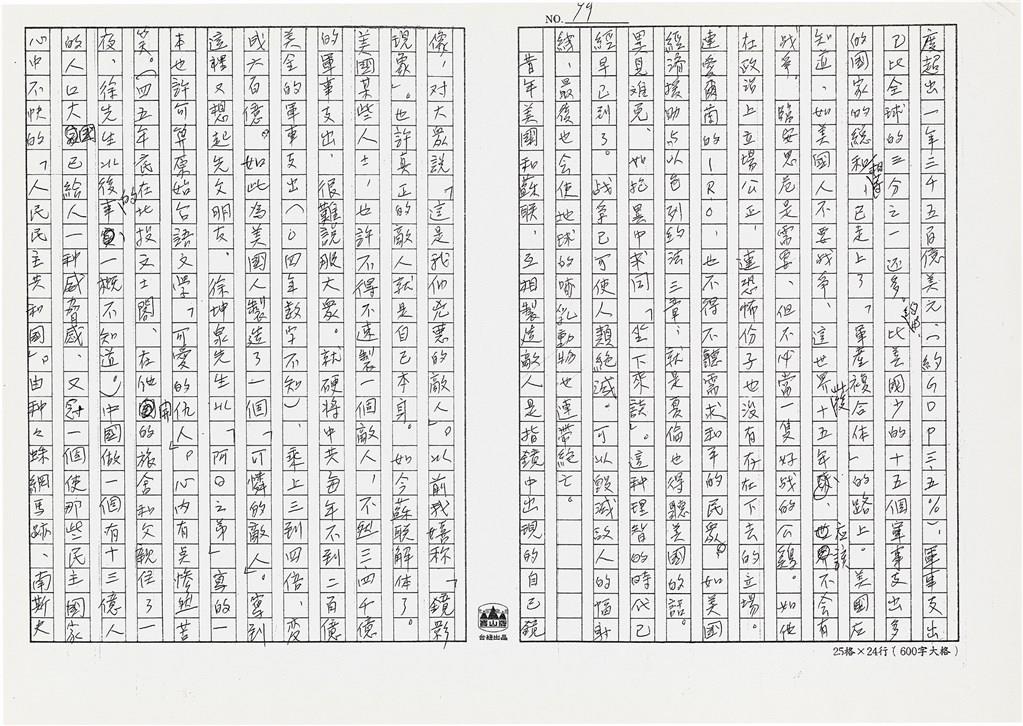 NO. 79
度超出一年三千五百億美元(約GDP三.五%),軍事支出
已比全球的三分之一還多。約再比美國少的十五個軍事支出多
的國家的總和相等,已走上了「軍產複合体」的路上。美國應
知道,如美國人不要战爭、這世界此後十五年應該不会有
战爭。臨安思危是需要、但不必當一隻好战的公鷄。如他
在政治上立場公正、連恐怖份子也沒有存在下去的立場。
連愛爾蘭的IRO、也不得不聽需求和平的民眾。如美國
經濟援助占以色列約法三章、就是夏倫也得聽美國的話。
異見难免、如把異中求同「坐下來談」。這种理智的時代已
經早已到了。战爭已可使人類絕滅。可以毀滅敌人的幅射
綫、最後也会使地球的哺乳動物也連帶絕亡。
昔年美國和蘇联、互相製造敵人是指鏡中出現的自己鏡
像,对大眾說「這是我们兇惡的敵人」。以前我嬉称「鏡影
現象」。也許真正的敵人就是自己本身。如今蘇联解体了。
美國某些人士,也許不得不速製一個敵人,不然三、四千億
的軍事支出、很難說服大眾。就硬將中共每年不到二百億
美金的軍事支出(〇四年数字不知)乘上三到四倍、変
成六百億。如此為美國人製造了一個「可憐的敵人」。寫到
這裡又想起先文明友、徐坤泉先生以「阿Q之弟」寫的一
本也許可算原始台語文學「可愛的仇人」。心内有点惨然苦
笑。(四五年民在北投文士閣、在他開的旅舍和父親住了一
夜、徐先生以後的事一概不知道。)中國做一個有十三億人
的人口大國已給人一种威脅感、又冠一個使那些民主國家
心中不快的「人民民主共和國」。由种々蛛網馬跡、南斯夫
台紙出品
25格×24行(600字大格)